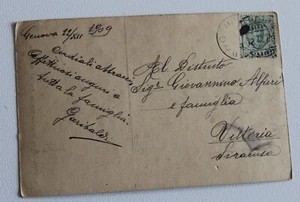 Genova 22/XII 1909
Cordiali abbracci
affettuosi auguri a
tutta la famiglia
Garibaldi
Al Distinto
Sigr Giovannino Alfieri
e famiglia
Vittoria
Siracusa